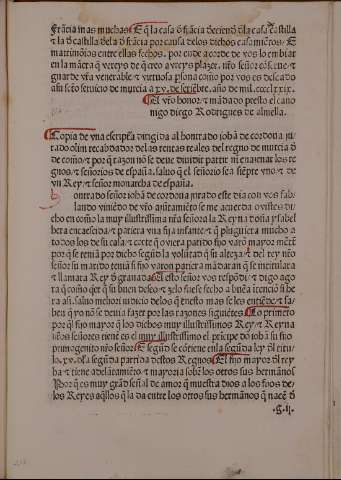 Frãcia mas muchas. E q̃ la casa d̃ frãcia deciend̃ d̃la casa d̃ castilla
⁊ la d̃ castilla dela d̃ frãcia por causa delos dichos casamiẽtos. E
matrimonios entre ellas fechos. por ende acorde de vos lo embiar
en la manera que vereys de q̃ creo a vreys plazer. nr̃o señor cõserue ⁊
guarde vr̃a venerable ⁊ virtuosa p̃sona como por vos es deseado
a su scr̃o seruicio de murcia a xv. de setiẽbre. año de mil. cccc lxxix.
El vr̃o honor. ⁊ mãdado presto el cano
nigo diego Rodrigues de almella.
Copia de vna escriptura dirigida al honrrado johã de cordoua ju
rado olim recabdador delas rentas reales del regno de murcia d̃
de como ⁊ por q̃ razon nõ se deue diuidir partir ni enagenar los re
gnos ⁊ señorios de españa. saluo q̃ el señorio sea siẽpre vno ⁊ de
vn Rey ⁊ señor monarcha de españa.
onrrado señor johã de cordoua jurado este dia con vos fab
lando viniẽdo de vr̃o ayũtamiẽto se me acuerda ouistes di
cho en como la muy illustrissima nr̃a señora la Reyna doña ysabel
hera encaescida ⁊ pariera vna fija infante ⁊ que pluguiera mucho a
todos los de su casa ⁊ corte q̃ ouiera parido fijo varon mayor mẽte
por que se temia por dicho segũd la volũtad q̃ su alteza ⁊ del rey nr̃o
señor su marido tenia si fijo varon pariera mãdaran que se intitulara
⁊ llamara Rey d̃ granada. A esto señor vos respõdi ⁊ digo agora
que como q̃ier q̃ su buen deseo ⁊ zelo fuese fecho a buena intenciõ si he
ra asi. saluo mejor iudicio delos que d̃nesto mas se les entiẽde ⁊ sa
ben q̃ yo nõ se deuia fazer por las razones siguiẽtes. Lo primero
por q̃l fijo mayor que los dichos muy illustrissimos Rey ⁊ Reyna
nr̃os señores tiene es el muy illustrissimo el prĩcipe dõ johã su fijo
primogenito nr̃o señor. E segũd se cõtiene en la segũda ley d̃l titu
lo. xv. d̃la segũda partida d̃estos Regnos. El fijo mayor d̃l rey
ha ⁊ tiene adelãtamiẽto ⁊ mayoria sobre los otros sus hermanos
Por que es muy grãd señal de amor que muestra dios a los fijos de
los Reyes aq̃llos que la da entre los otros sus hermanos que naçẽ d̃
.g.ij.